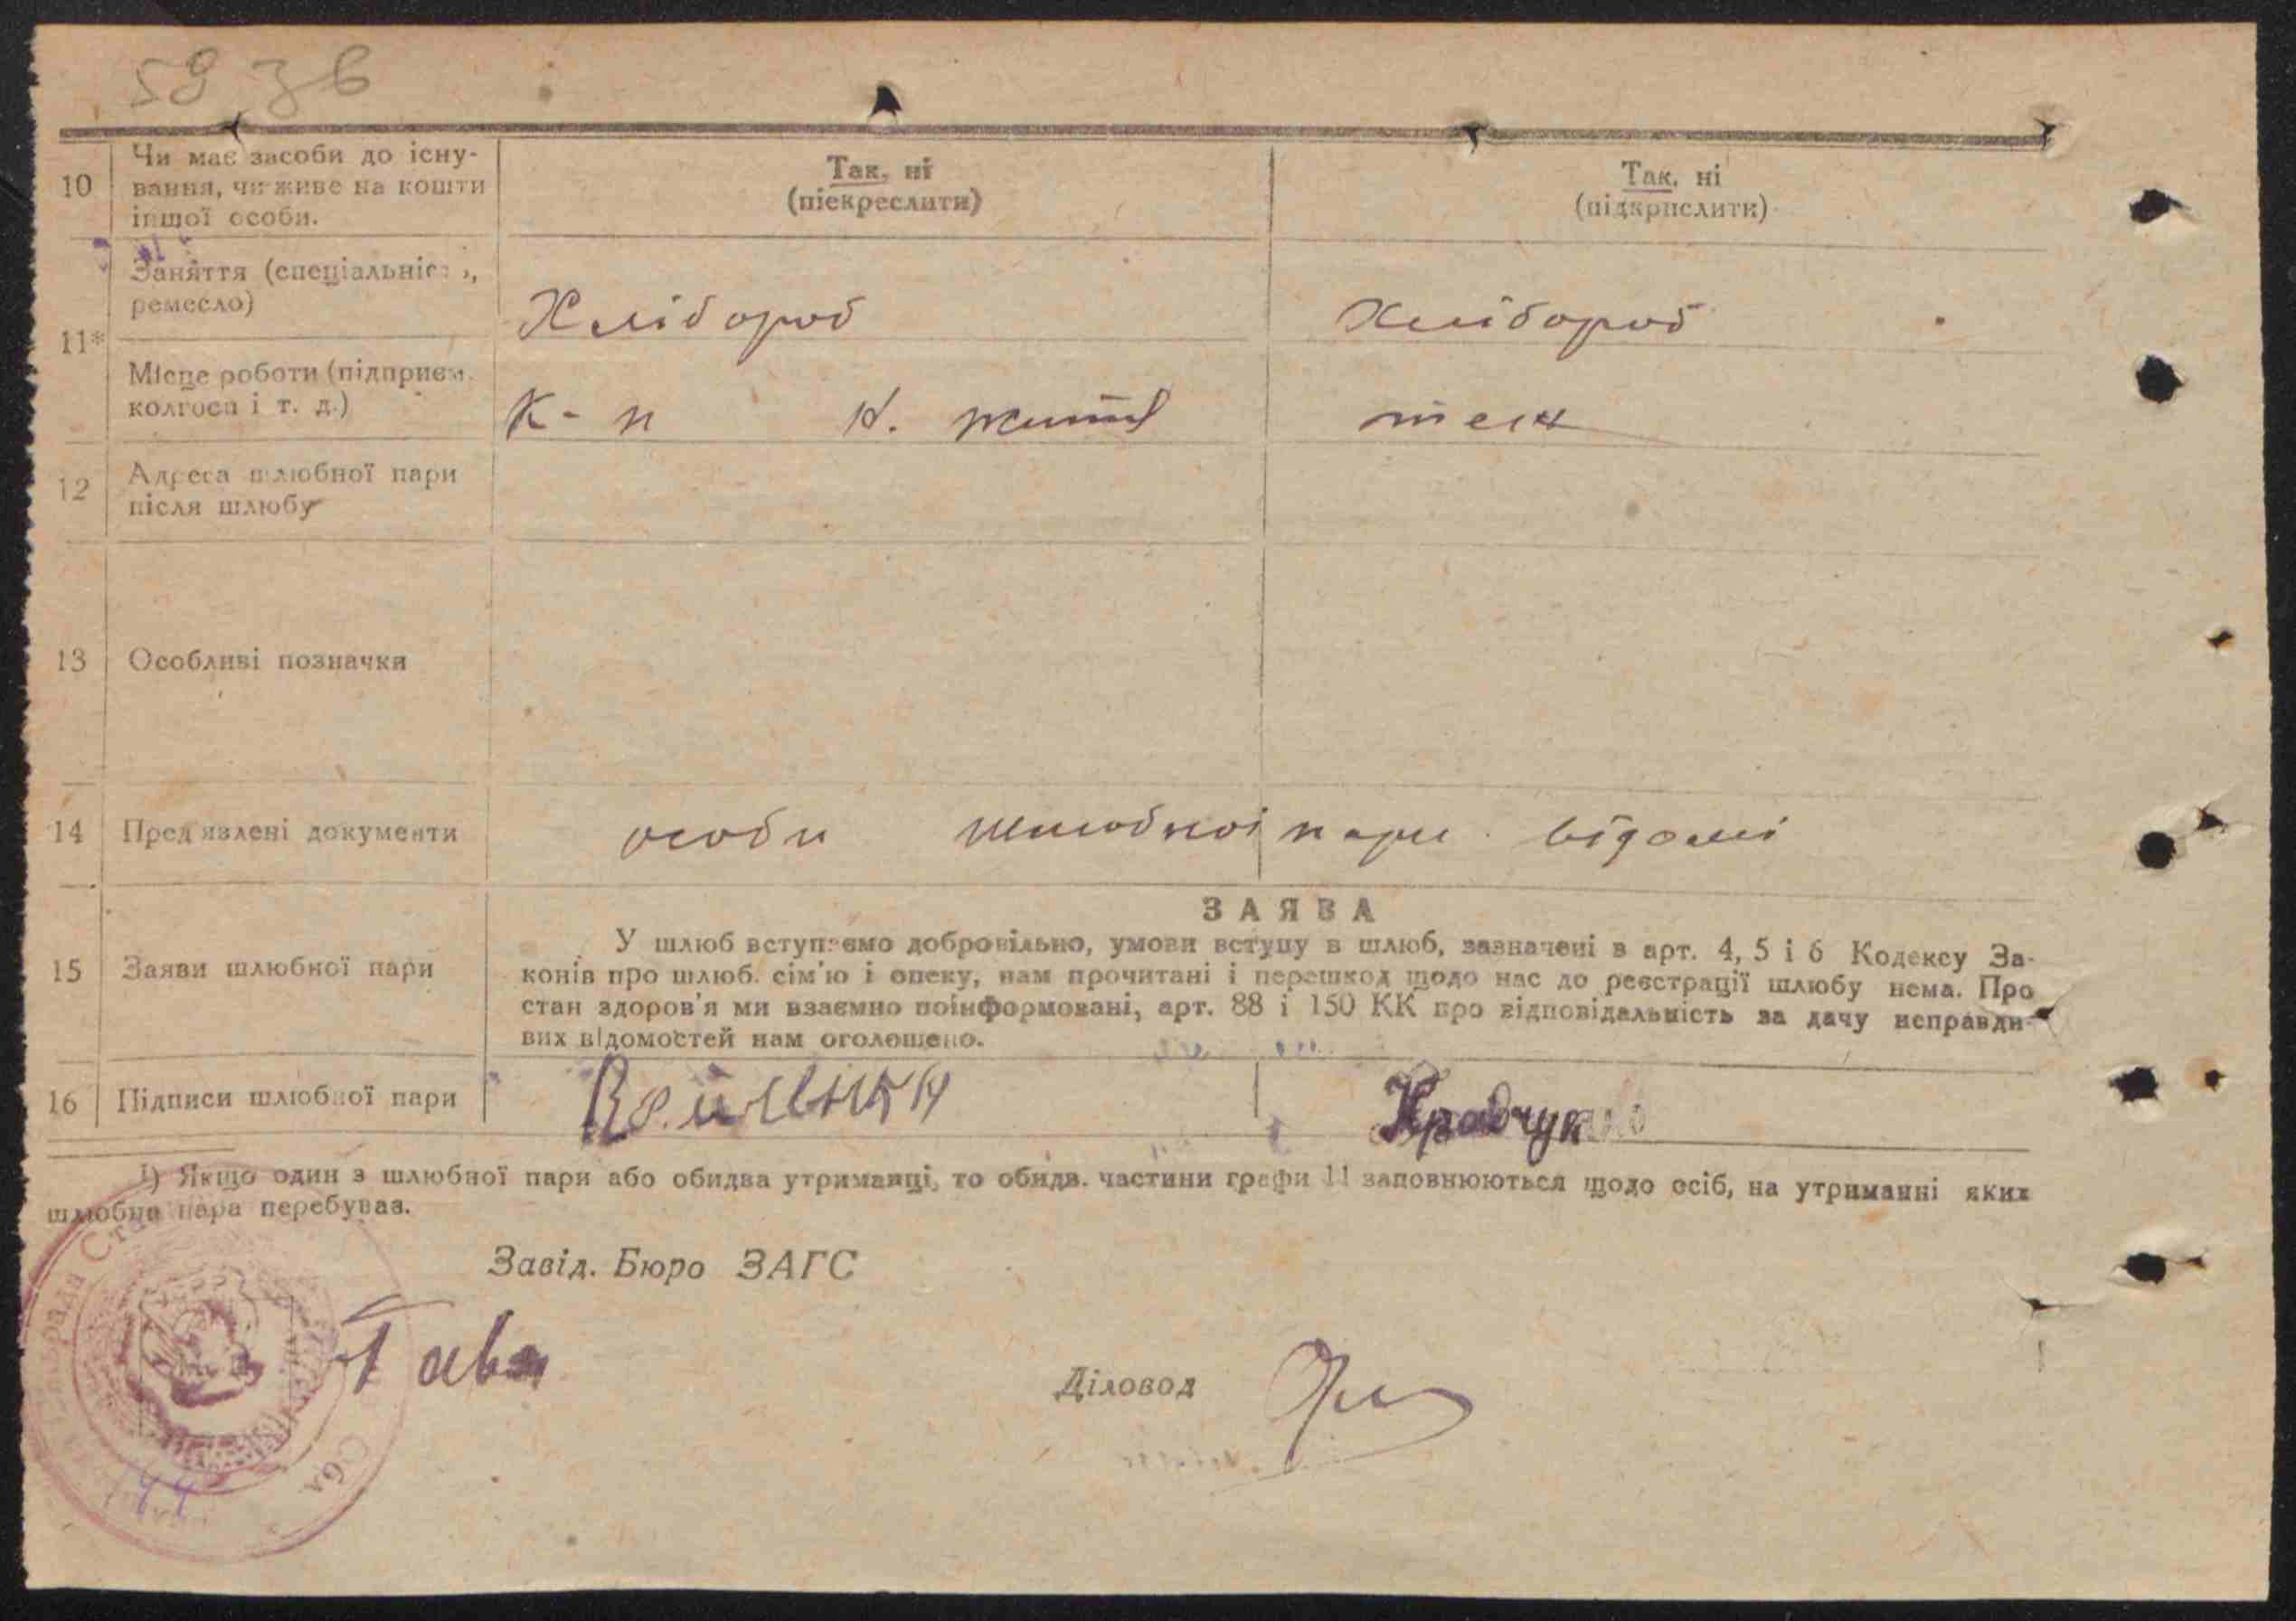 59 зв
10
Чи має засоби до існу-
вання, чи живе на кошти
іншої особи.
Так, ні
(піекреслити)
Так, ні
(підкрислити)
11*
Заняття (спеціальніс ,
ремесло)
Хлібороб
Хлібороб
Місце роботи (підприєм.
колгосп і т. д.)
К-п Н. життя
теж
12
Адреса шлюбної пари
після шлюбу
13
Особливі позначки
14
Пред'явлені документи
особи шлюбної пари відомі
15
Заяви шлюбної пари
ЗАЯВА
У шлюб вступаємо добровільно, умови вступу в шлюб, зазначені в арт. 4, 5 і 6 Кодексу За-
конів про шлюб. сім'ю і опеку, нам прочитані і перешкод щодо нас до реєстрації шлюбу нема. Про
стан здоров'я ми взаємно поінформовані, арт. 88 і 150 КК про відповідальність за дачу неправди-
вих відомостей нам оголошено.
16
Підписи шлюбної пари
Кравчук
1) Якщо один з шлюбної пари або обидва утриманці, то обидв. частини графи 11 заповнюються щодо осіб, на утриманні яких
шлюбна пара перебуває.
Завід. Бюро ЗАГС
Діловод